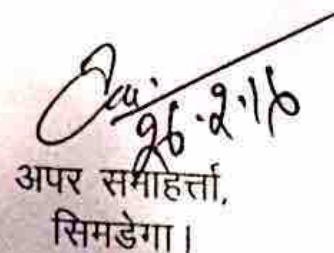 26.2.16
अपर समाहर्त्ता,
सिमडेगा।